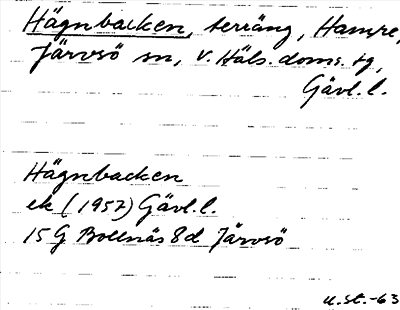 Hägnbacken, terräng, Hamre,
Järvsö sn, V. Häls. doms. tg,
Gävl. l.
Hägnbacken
ek (1957) Gävl. l.
15 G Bollnäs 8d Järvsö
u.st.-63